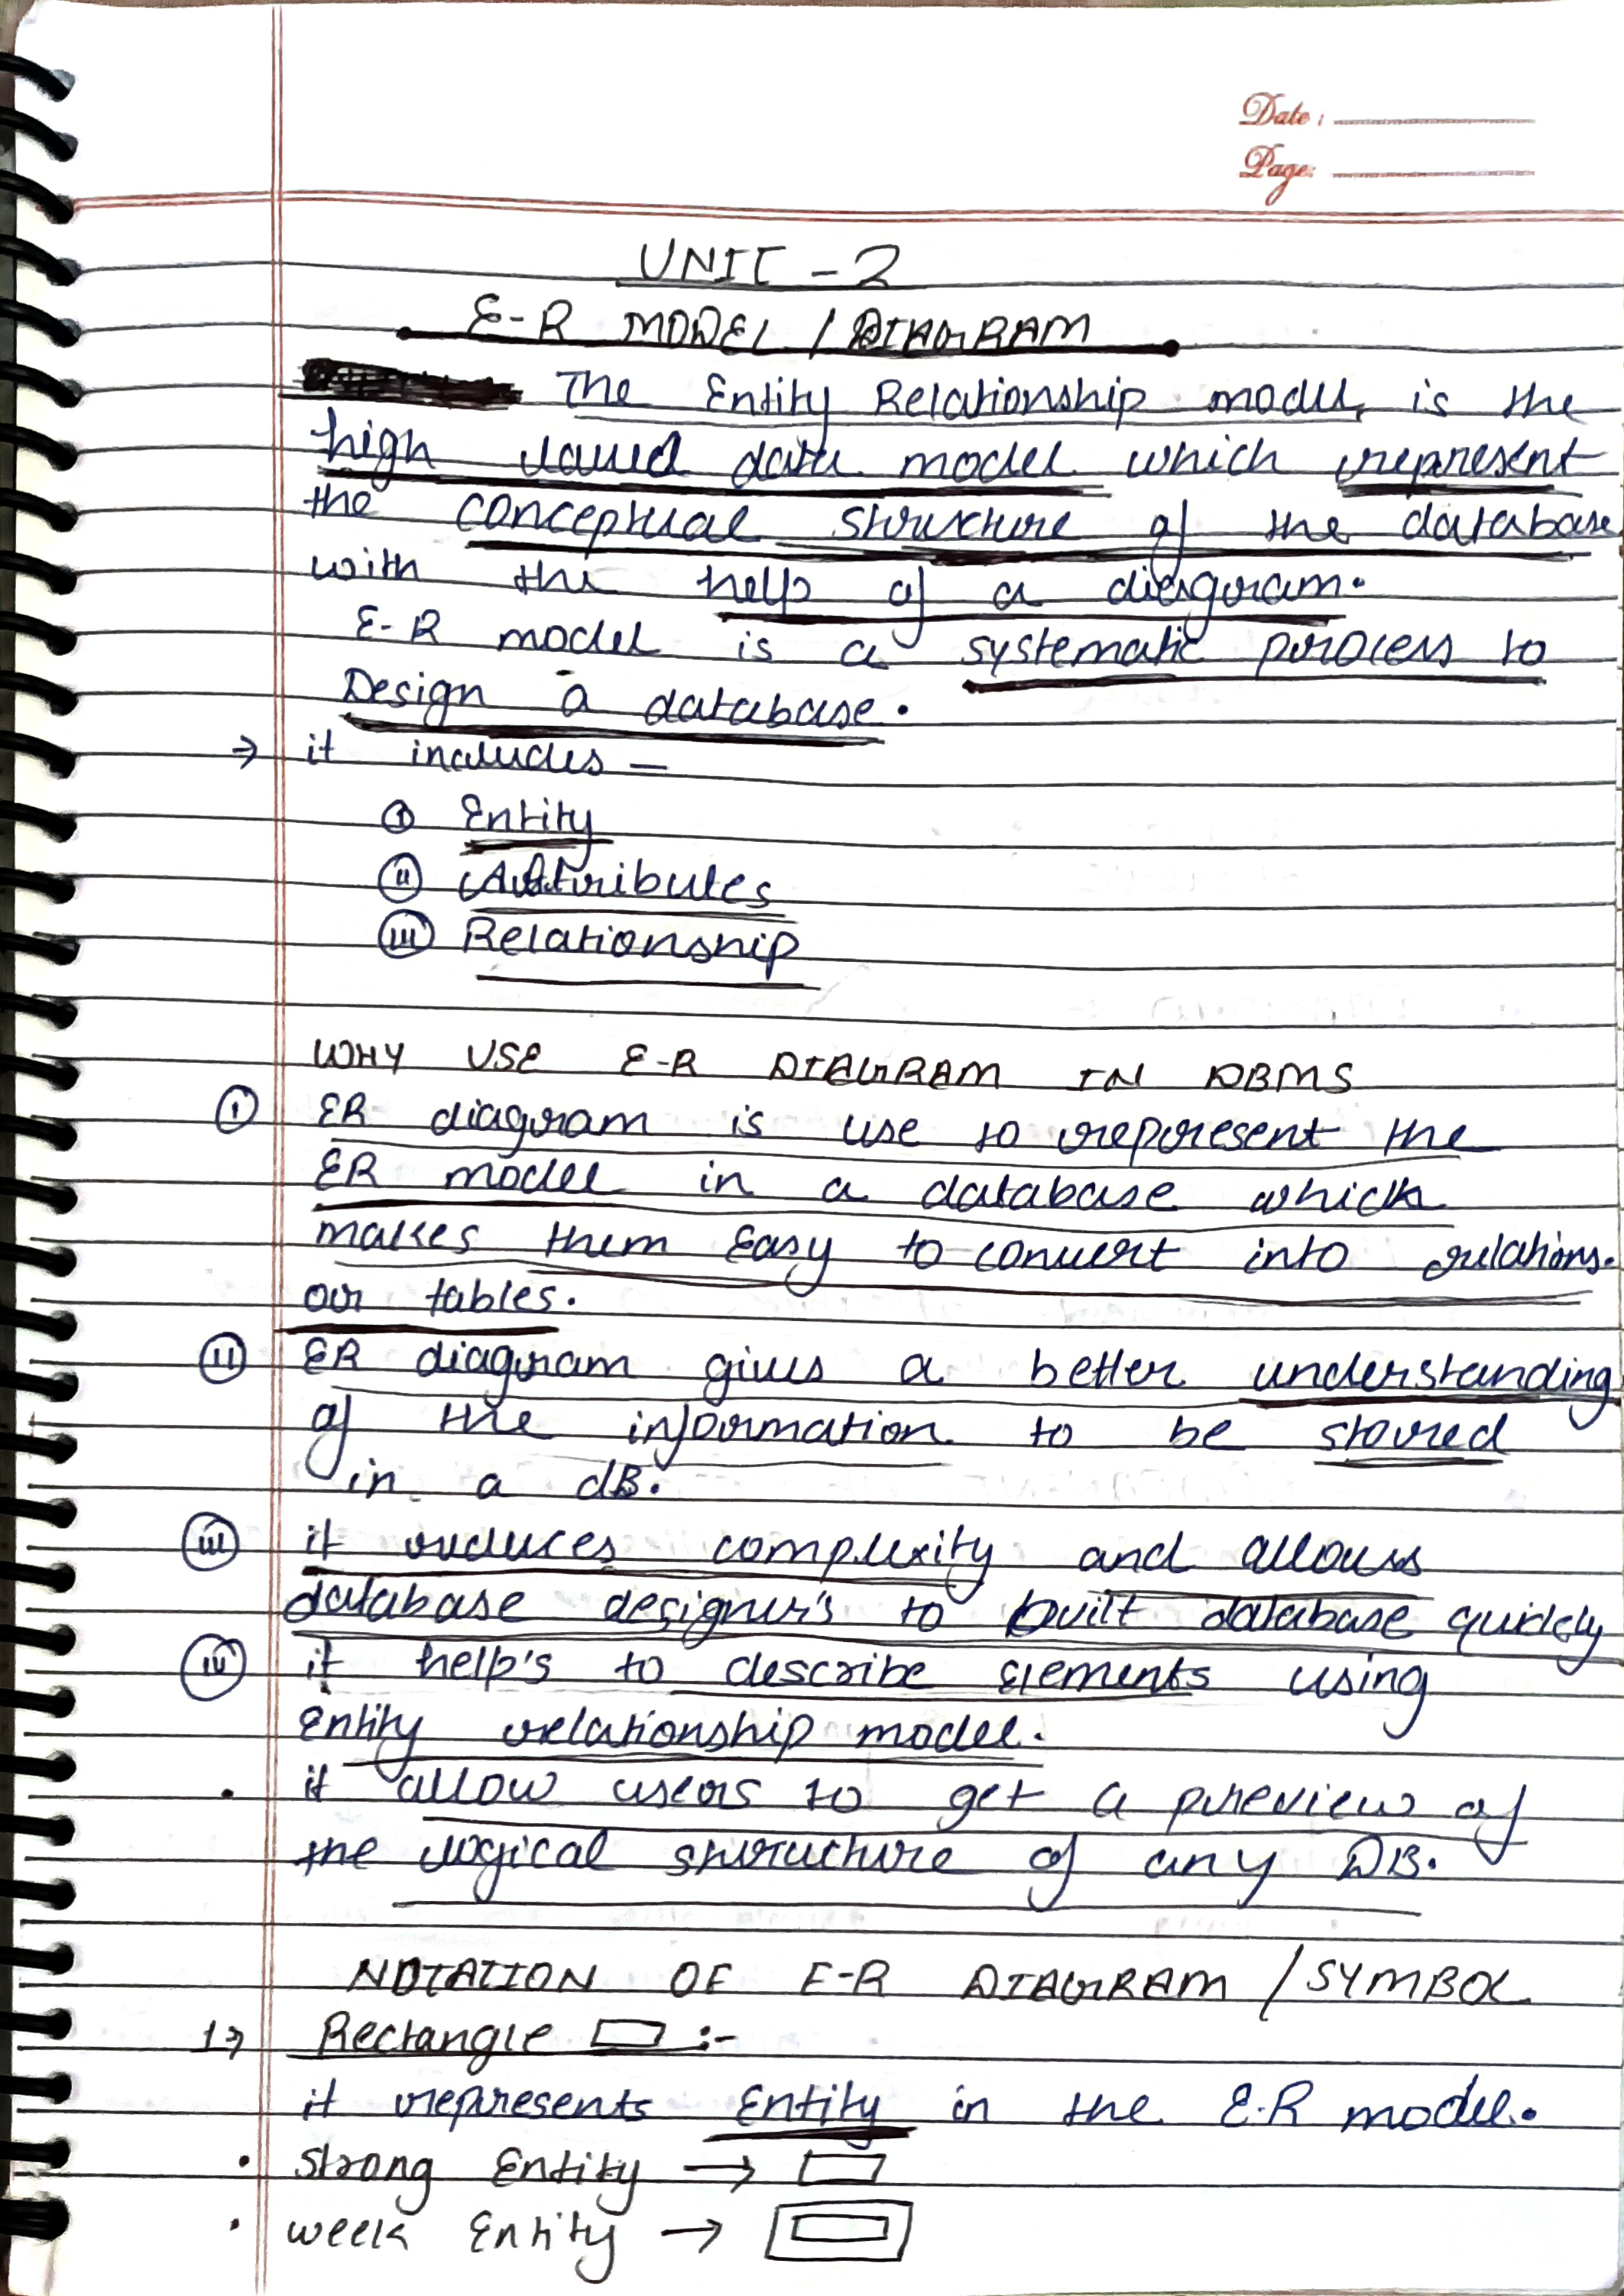 Date:
Page:
UNIT - 2
E-R MODEL / DIAGRAM
The Entity Relationship model, is the
high level data model which represent
the conceptual structure of the database
with the help of a diagram.
E-R model is a systematic process to
Design a database.
→ it includes —
(i) Entity
(ii) Attributes
(iii) Relationship
WHY USE E-R DIAGRAM IN DBMS
(i) ER diagram is use to represent the
ER model in a database which
makes them Easy to convert into relations.
or tables.
(ii) ER diagram gives a better understanding
of the information to be stored
in a dB.
(iii) it reduces complexity and allows
database designer's to built database quickly
(iv) it help's to describe elements using
Entity relationship model.
• it allow users to get a preview of
the logical structure of any DB.
NOTATION OF E-R DIAGRAM / SYMBOL
1→ Rectangle :-
it represents Entity in the E.R model.
• Strong Entity →
• week Entity →